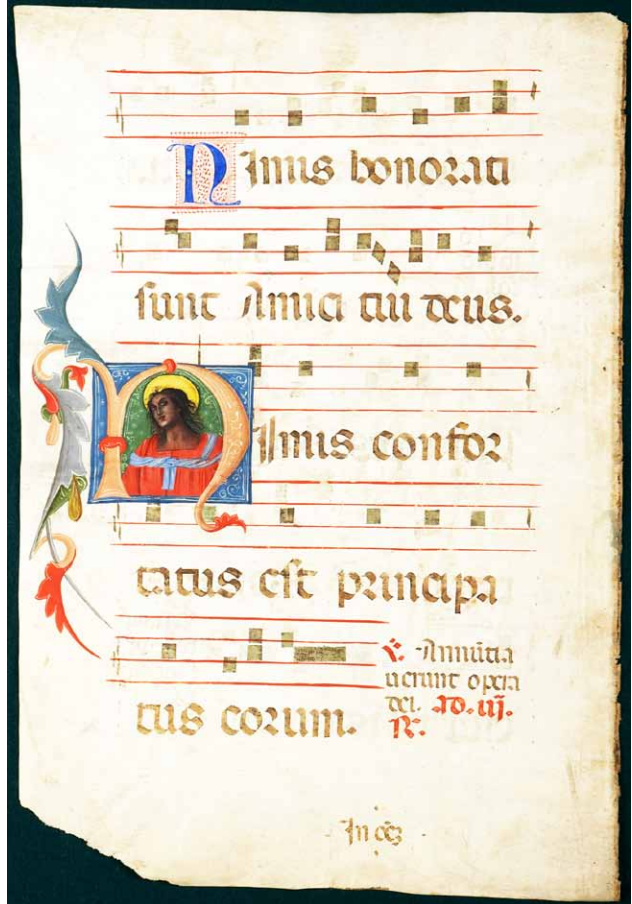 Nimis honorati
sunt Amici tui deus.
Nimis confor
tatus est principa
tus eorum.
℣. Annūtia
uerunt opera
dei. .ID. iij.
℟.
In oēȝ